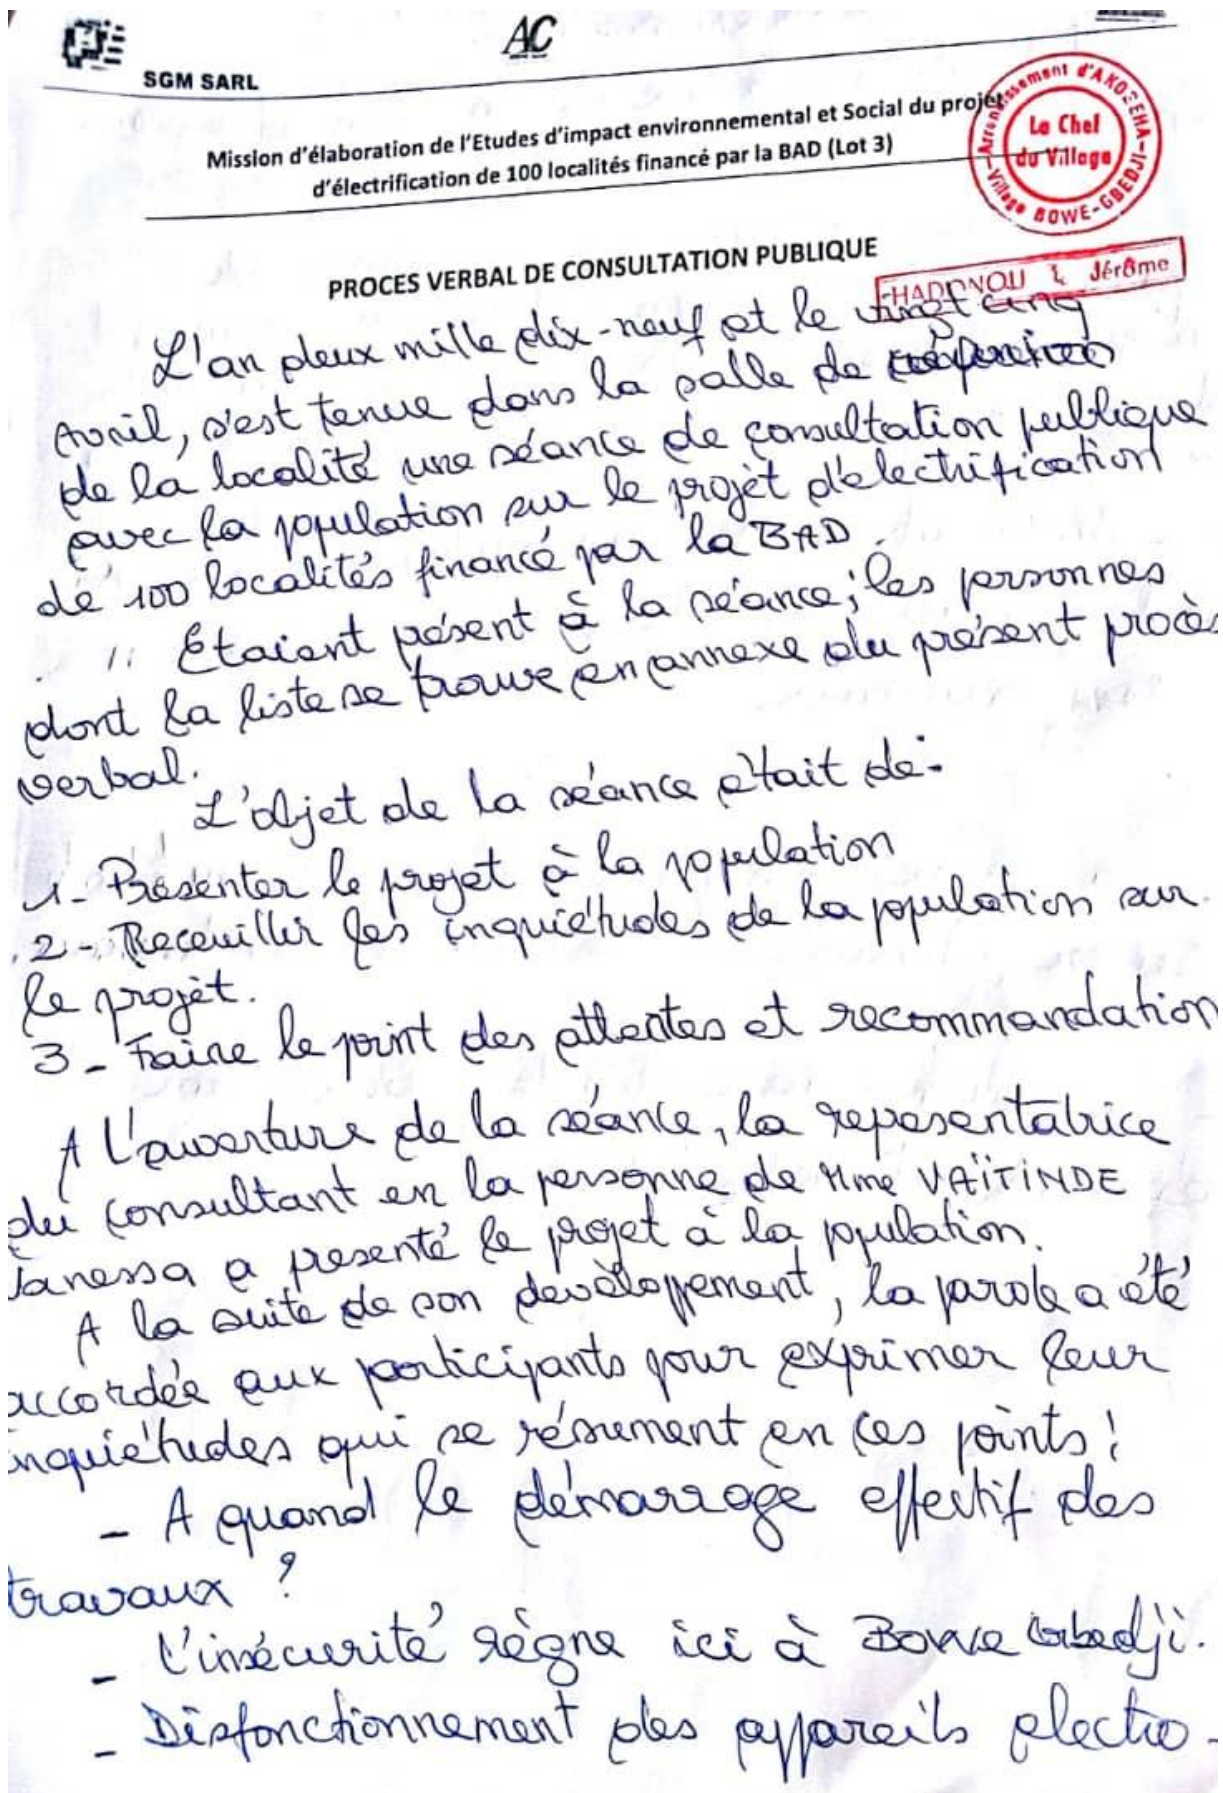 AC
SGM SARL
Mission d'élaboration de l'Etudes d'impact environnemental et Social du projet
d'électrification de 100 localités financé par la BAD (Lot 3)
Arrondissement d'AKODEHA
Le Chef
du Village
Village BOWE-GBEDJI
PROCES VERBAL DE CONSULTATION PUBLIQUE
Jérôme
L'an deux mille dix-neuf et le vingt cinq
Avril, s'est tenue dans la salle de
de la localité une séance de consultation publique
avec la population sur le projet d'électrification
de 100 localités financé par la BAD.
Etaient présent à la séance; les personnes
dont la liste se trouve en annexe du présent procès
verbal.
L'objet de la séance était de:
1- Présenter le projet à la population
2- Receuillir les inquiétudes de la population sur
le projet.
3- Faire le point des attentes et recommandation
A l'ouverture de la séance, la representatrice
du consultant en la personne de Mme VAÏTINDE
Vanessa a presenté le projet à la population.
A la suite de son développement, la parole a été
accordée aux participants pour exprimer leur
inquiétudes qui se résument en ces points:
- A quand le démarrage effectif des
travaux ?
- L'insécurité règne ici à Bowe Gbedji.
- Disfonctionnement des appareils electro-